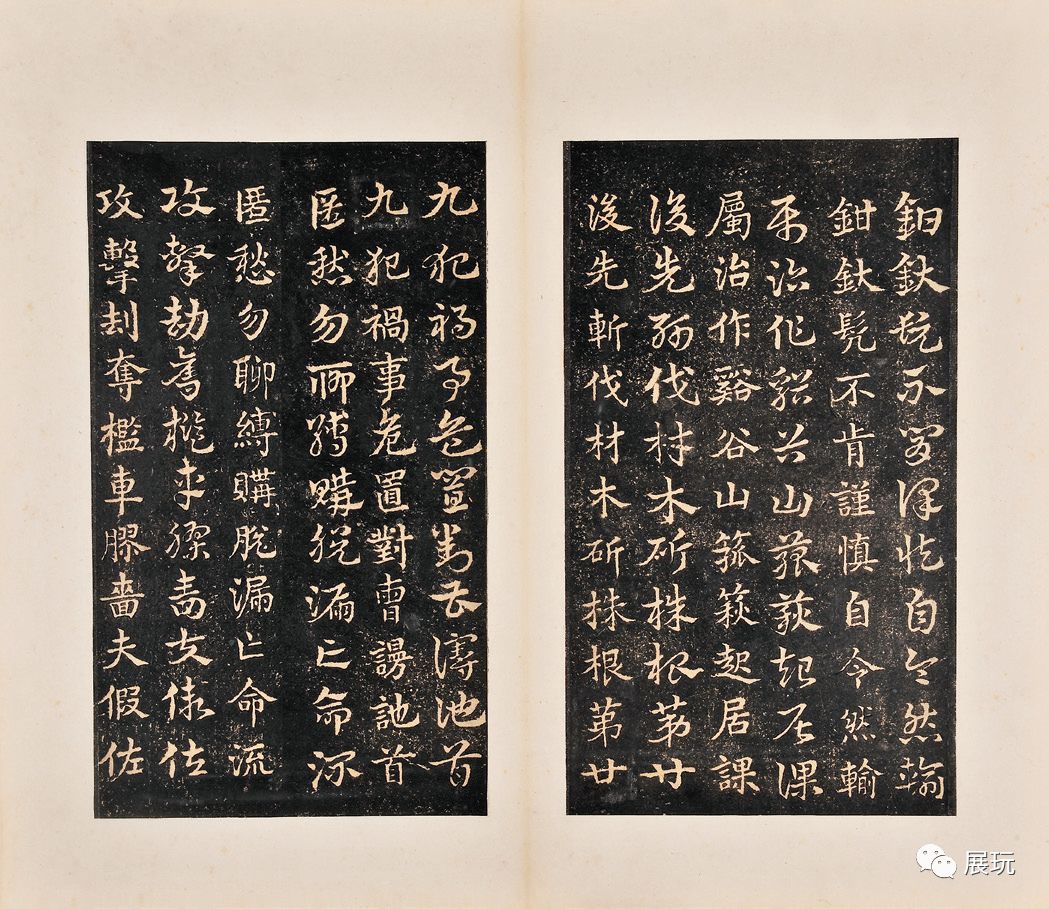 鉗釱髡不肯謹慎自令然輸
鉗釱髡不肯謹慎自令然輸
屬治作谿谷山箛篍起居課
屬治作谿谷山箛篍起居課
後先斬伐材木斫株根第廿
後先斬伐材木斫株根第廿
九犯禍事危置對曹謾訑首
九犯禍事危置對曹謾訑首
匿愁勿聊縛購脫漏亡命流
匿愁勿聊縛購脫漏亡命流
攻擊劫奪檻車膠嗇夫假佐
攻擊刦奪檻車膠嗇夫假佐
展玩